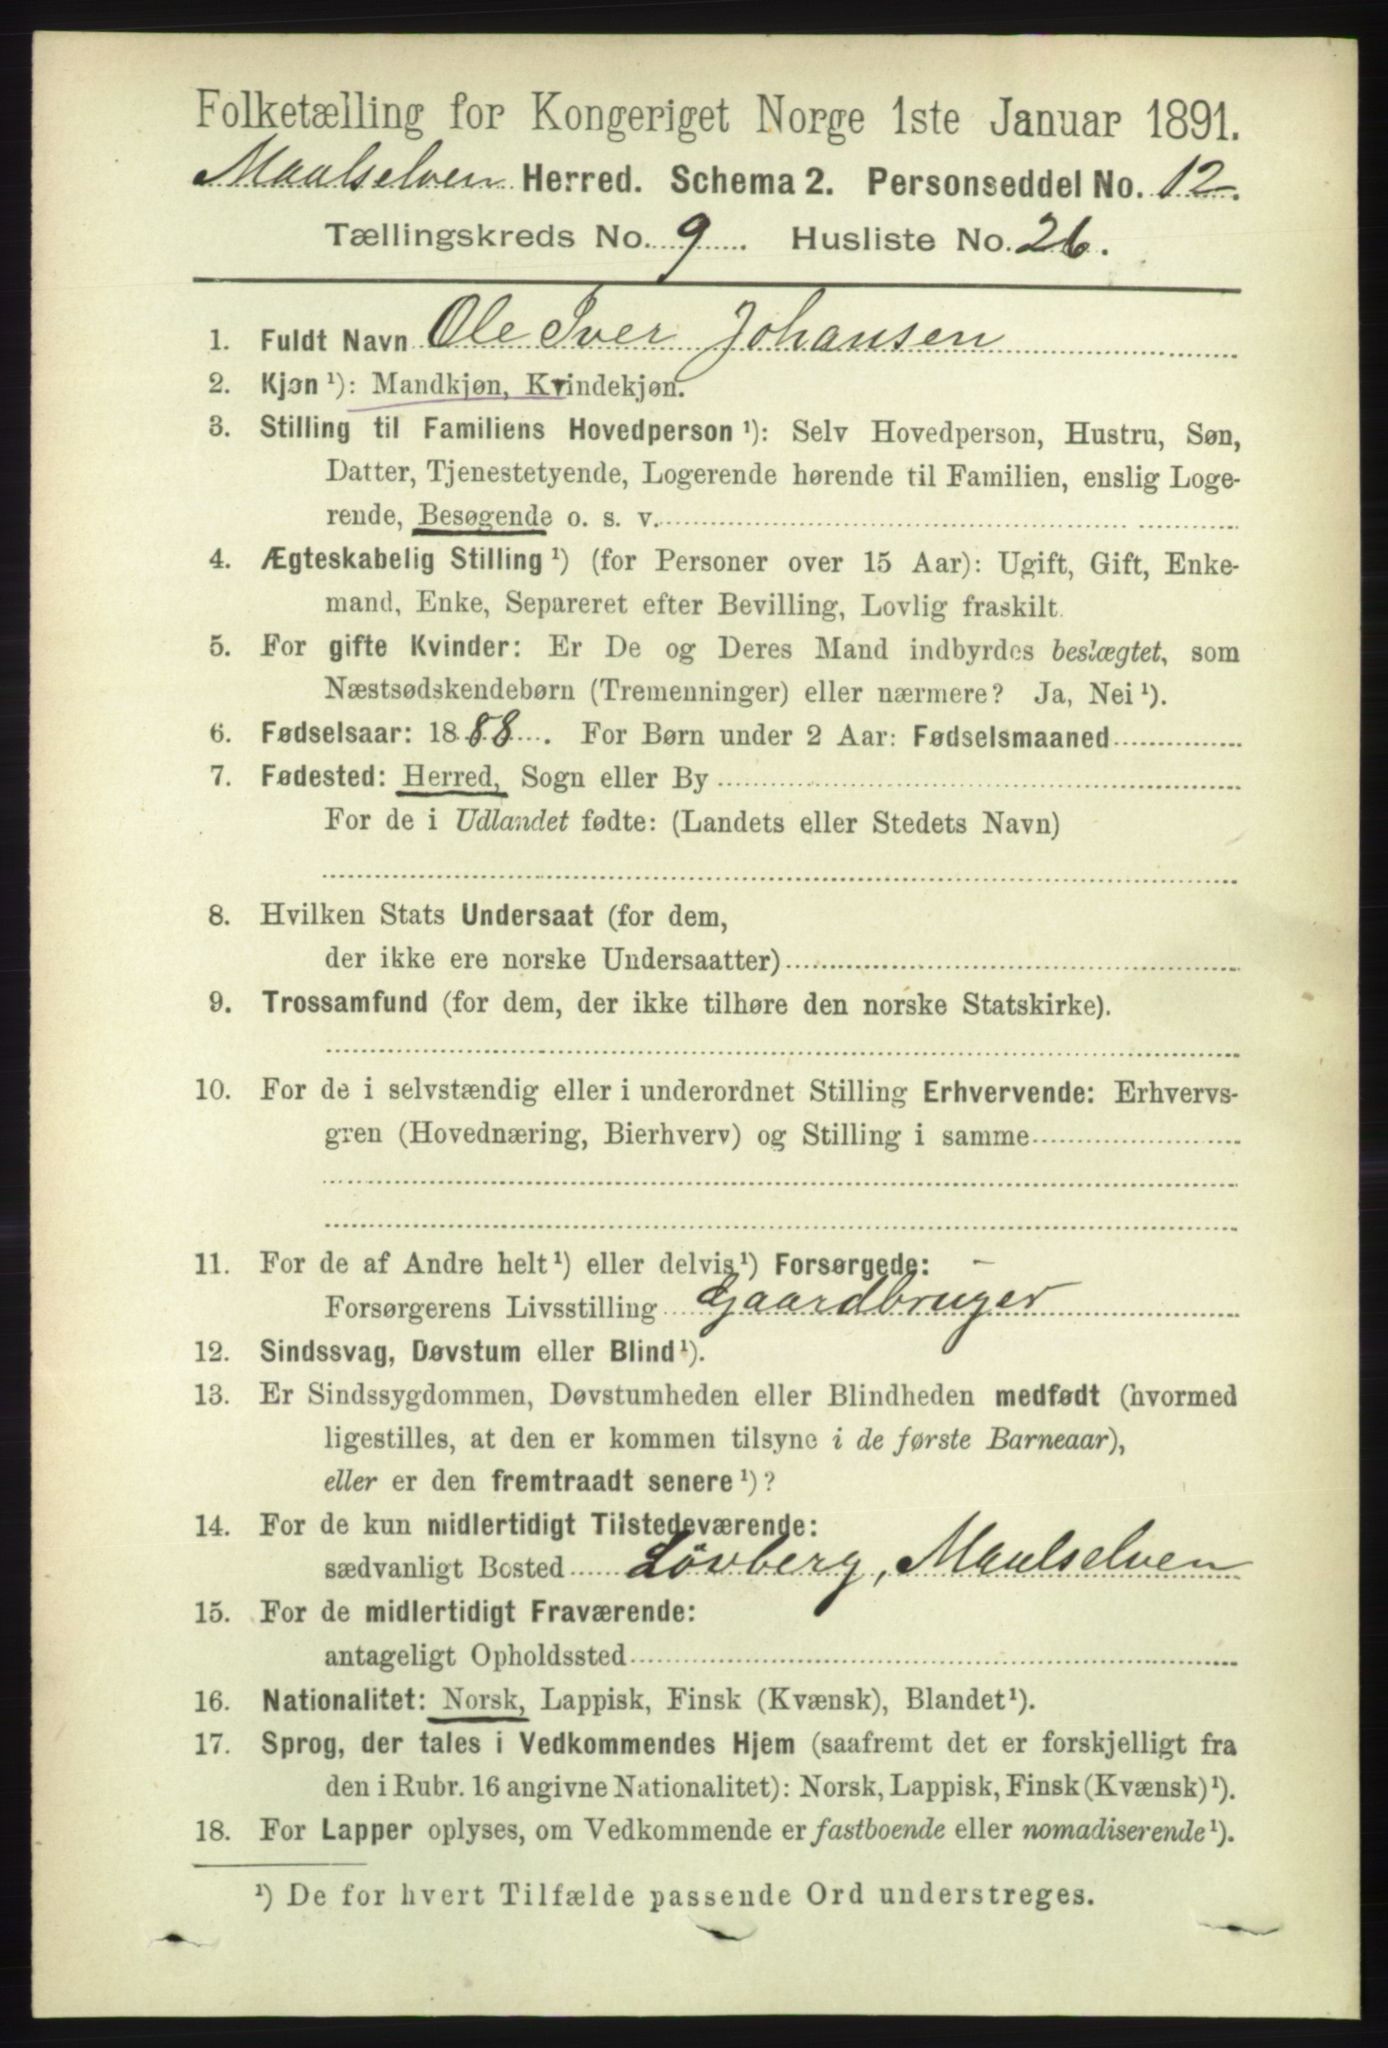 Folketælling for Kongeriget Norge 1ste Januar 1891.
Maalselven Herred. Schema 2. Personseddel No. 12.
Tællingskreds No. 9. Husliste No. 26.
1. Fuldt Navn Ole Iver Johansen
2. Kjøn ¹): Mandkjøn, Kvindekjøn.
3. Stilling til Familiens Hovedperson ¹): Selv Hovedperson, Hustru, Søn,
Datter, Tjenestetyende, Logerende hørende til Familien, enslig Loge-
rende, Besøgende o. s. v.
4. Ægteskabelig Stilling ¹) (for Personer over 15 Aar): Ugift, Gift, Enke-
mand, Enke, Separeret efter Bevilling, Lovlig fraskilt.
5. For gifte Kvinder: Er De og Deres Mand indbyrdes beslægtet, som
Næstsødskendebørn (Tremenninger) eller nærmere? Ja, Nei ¹).
6. Fødselsaar: 1888. For Børn under 2 Aar: Fødselsmaaned
7. Fødested: Herred, Sogn eller By
For de i Udlandet fødte: (Landets eller Stedets Navn)
8. Hvilken Stats Undersaat (for dem,
der ikke ere norske Undersaatter)
9. Trossamfund (for dem, der ikke tilhøre den norske Statskirke).
10. For de i selvstændig eller i underordnet Stilling Erhvervende: Erhvervs-
gren (Hovednæring, Bierhverv) og Stilling i samme
11. For de af Andre helt ¹) eller delvis ¹) Forsørgede: -
Forsørgerens Livsstilling Gaardbruger
12. Sindssvag, Døvstum eller Blind ¹).
13. Er Sindssygdommen, Døvstumheden eller Blindheden medfødt (hvormed
ligestilles, at den er kommen tilsyne i de første Barneaar),
eller er den fremtraadt senere ¹)?
14. For de kun midlertidigt Tilstedeværende:
sædvanligt Bosted Løvberg, Maalselven
15. For de midlertidigt Fraværende:
antageligt Opholdssted
16. Nationalitet: Norsk, Lappisk, Finsk (Kvænsk), Blandet ¹).
17. Sprog, der tales i Vedkommendes Hjem (saafremt det er forskjelligt fra
den i Rubr. 16 angivne Nationalitet): Norsk, Lappisk, Finsk (Kvænsk) ¹).
18. For Lapper oplyses, om Vedkommende er fastboende eller nomadiserende ¹).
¹) De for hvert Tilfælde passende Ord understreges.